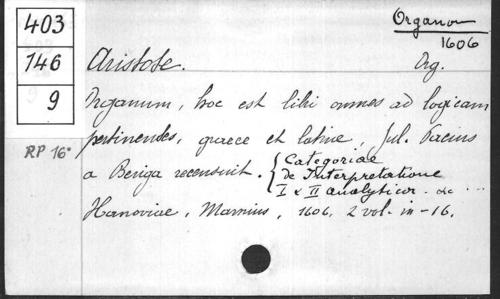 403
146
9
RP 16°
Organon
1606
Aristote.
Org.
Organum, hoc est libri omnes ad logicam
pertinentes, graece et latine, Jul. Pacius
a Beriga recensuit. { Categoriae
de Interpretatione
I & II analyticor. &c ...
Hanoviae, Marnius, 1606. 2 vol. in-16.